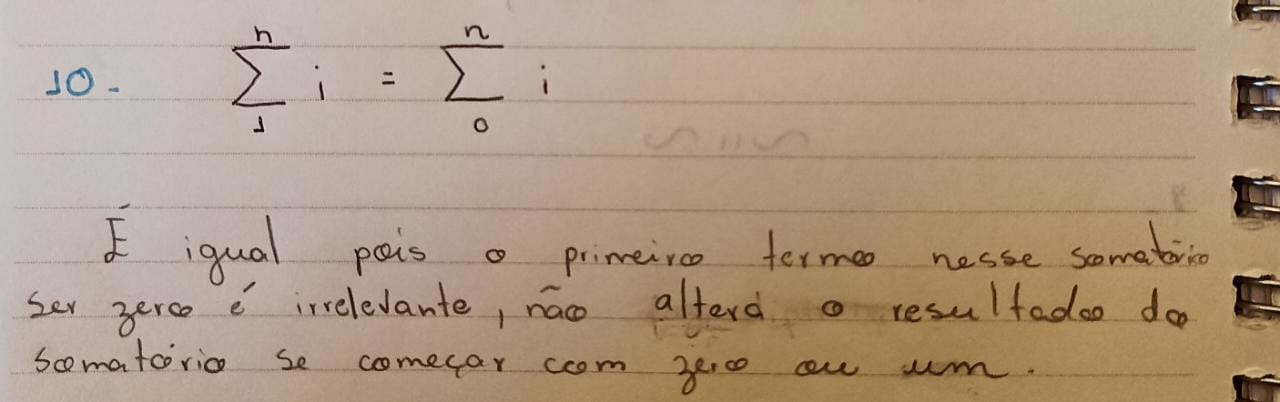 10. ∑ₙ₌₁ⁿ i = ∑₀ⁿ i
É igual pois o primeiro termo nesse somatório
ser zero é irrelevante, não altera o resultado do
somatório se começar com zero ou um.